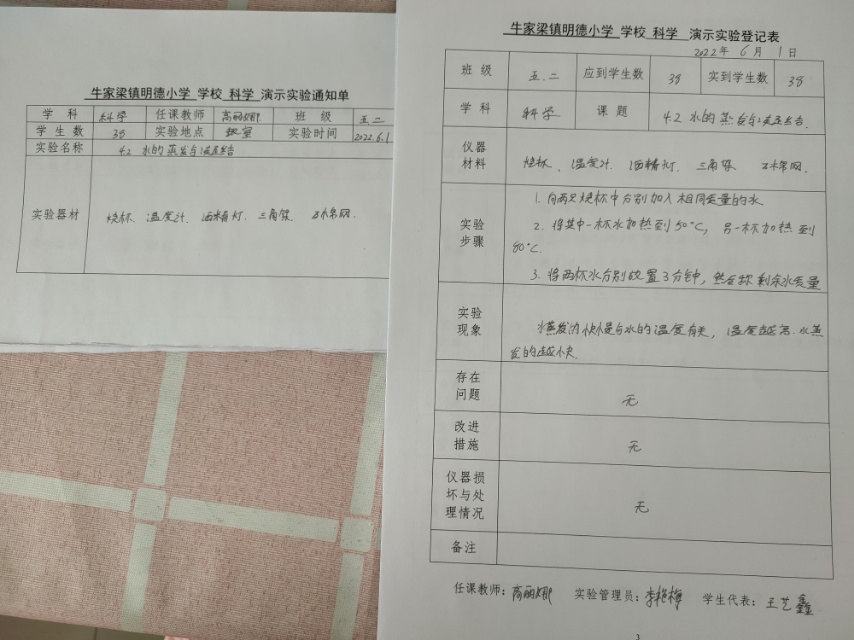 牛家梁镇明德小学 学校 科学 演示实验通知单
学 科 科学 任课教师 高丽娜 班 级 五.二
学 生 数 38 实验地点 教室 实验时间 2022.6.1
实验名称 4.2 水的蒸发与凝结
实验器材 烧杯、温度计、酒精灯、三角架、石棉网.
牛家梁镇明德小学 学校 科学 演示实验登记表
2022年 6月 1日
班 级 五.二 应到学生数 38 实到学生数 38
学 科 科学 课 题 4.2 水的蒸发与凝结
仪器
材料
烧杯、温度计、酒精灯、三角架、石棉网.
实验
步骤
1. 向两只烧杯中分别加入相同质量的水
2. 将其中一杯水加热到50℃,另一杯加热到
80℃.
3. 将两杯水分别放置3分钟,然后称剩余水质量
实验
现象
水蒸发的快慢与水的温度有关,温度越高.水蒸
发的越快.
存在
问题
无
改进
措施
无
仪器损
坏与处
理情况
无
备注
任课教师:高丽娜 实验管理员:李艳梅 学生代表:王艺鑫